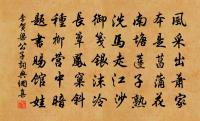 風采出蕭家
本是菖蒲花
南塘蓮子熟
洗馬走江沙
御箋銀沫冷
長簟鳳窠斜
種柳營中暗
題書賜館娃
李賀梁公子詞典網集